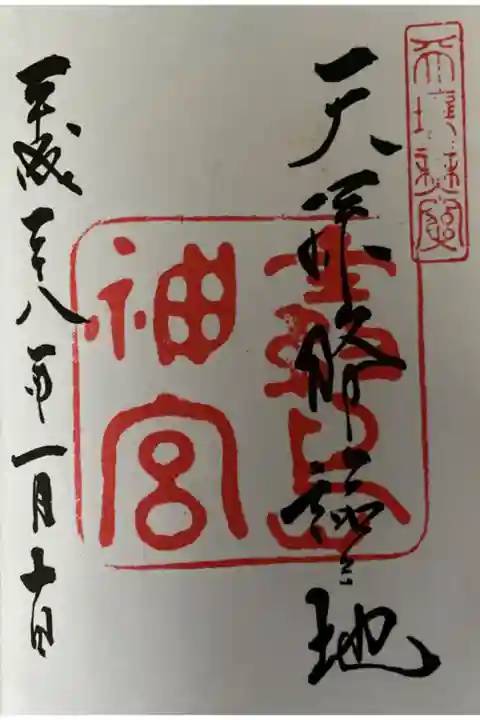 天孫降臨之地
霧島
神宮
平成二十八年一月十日